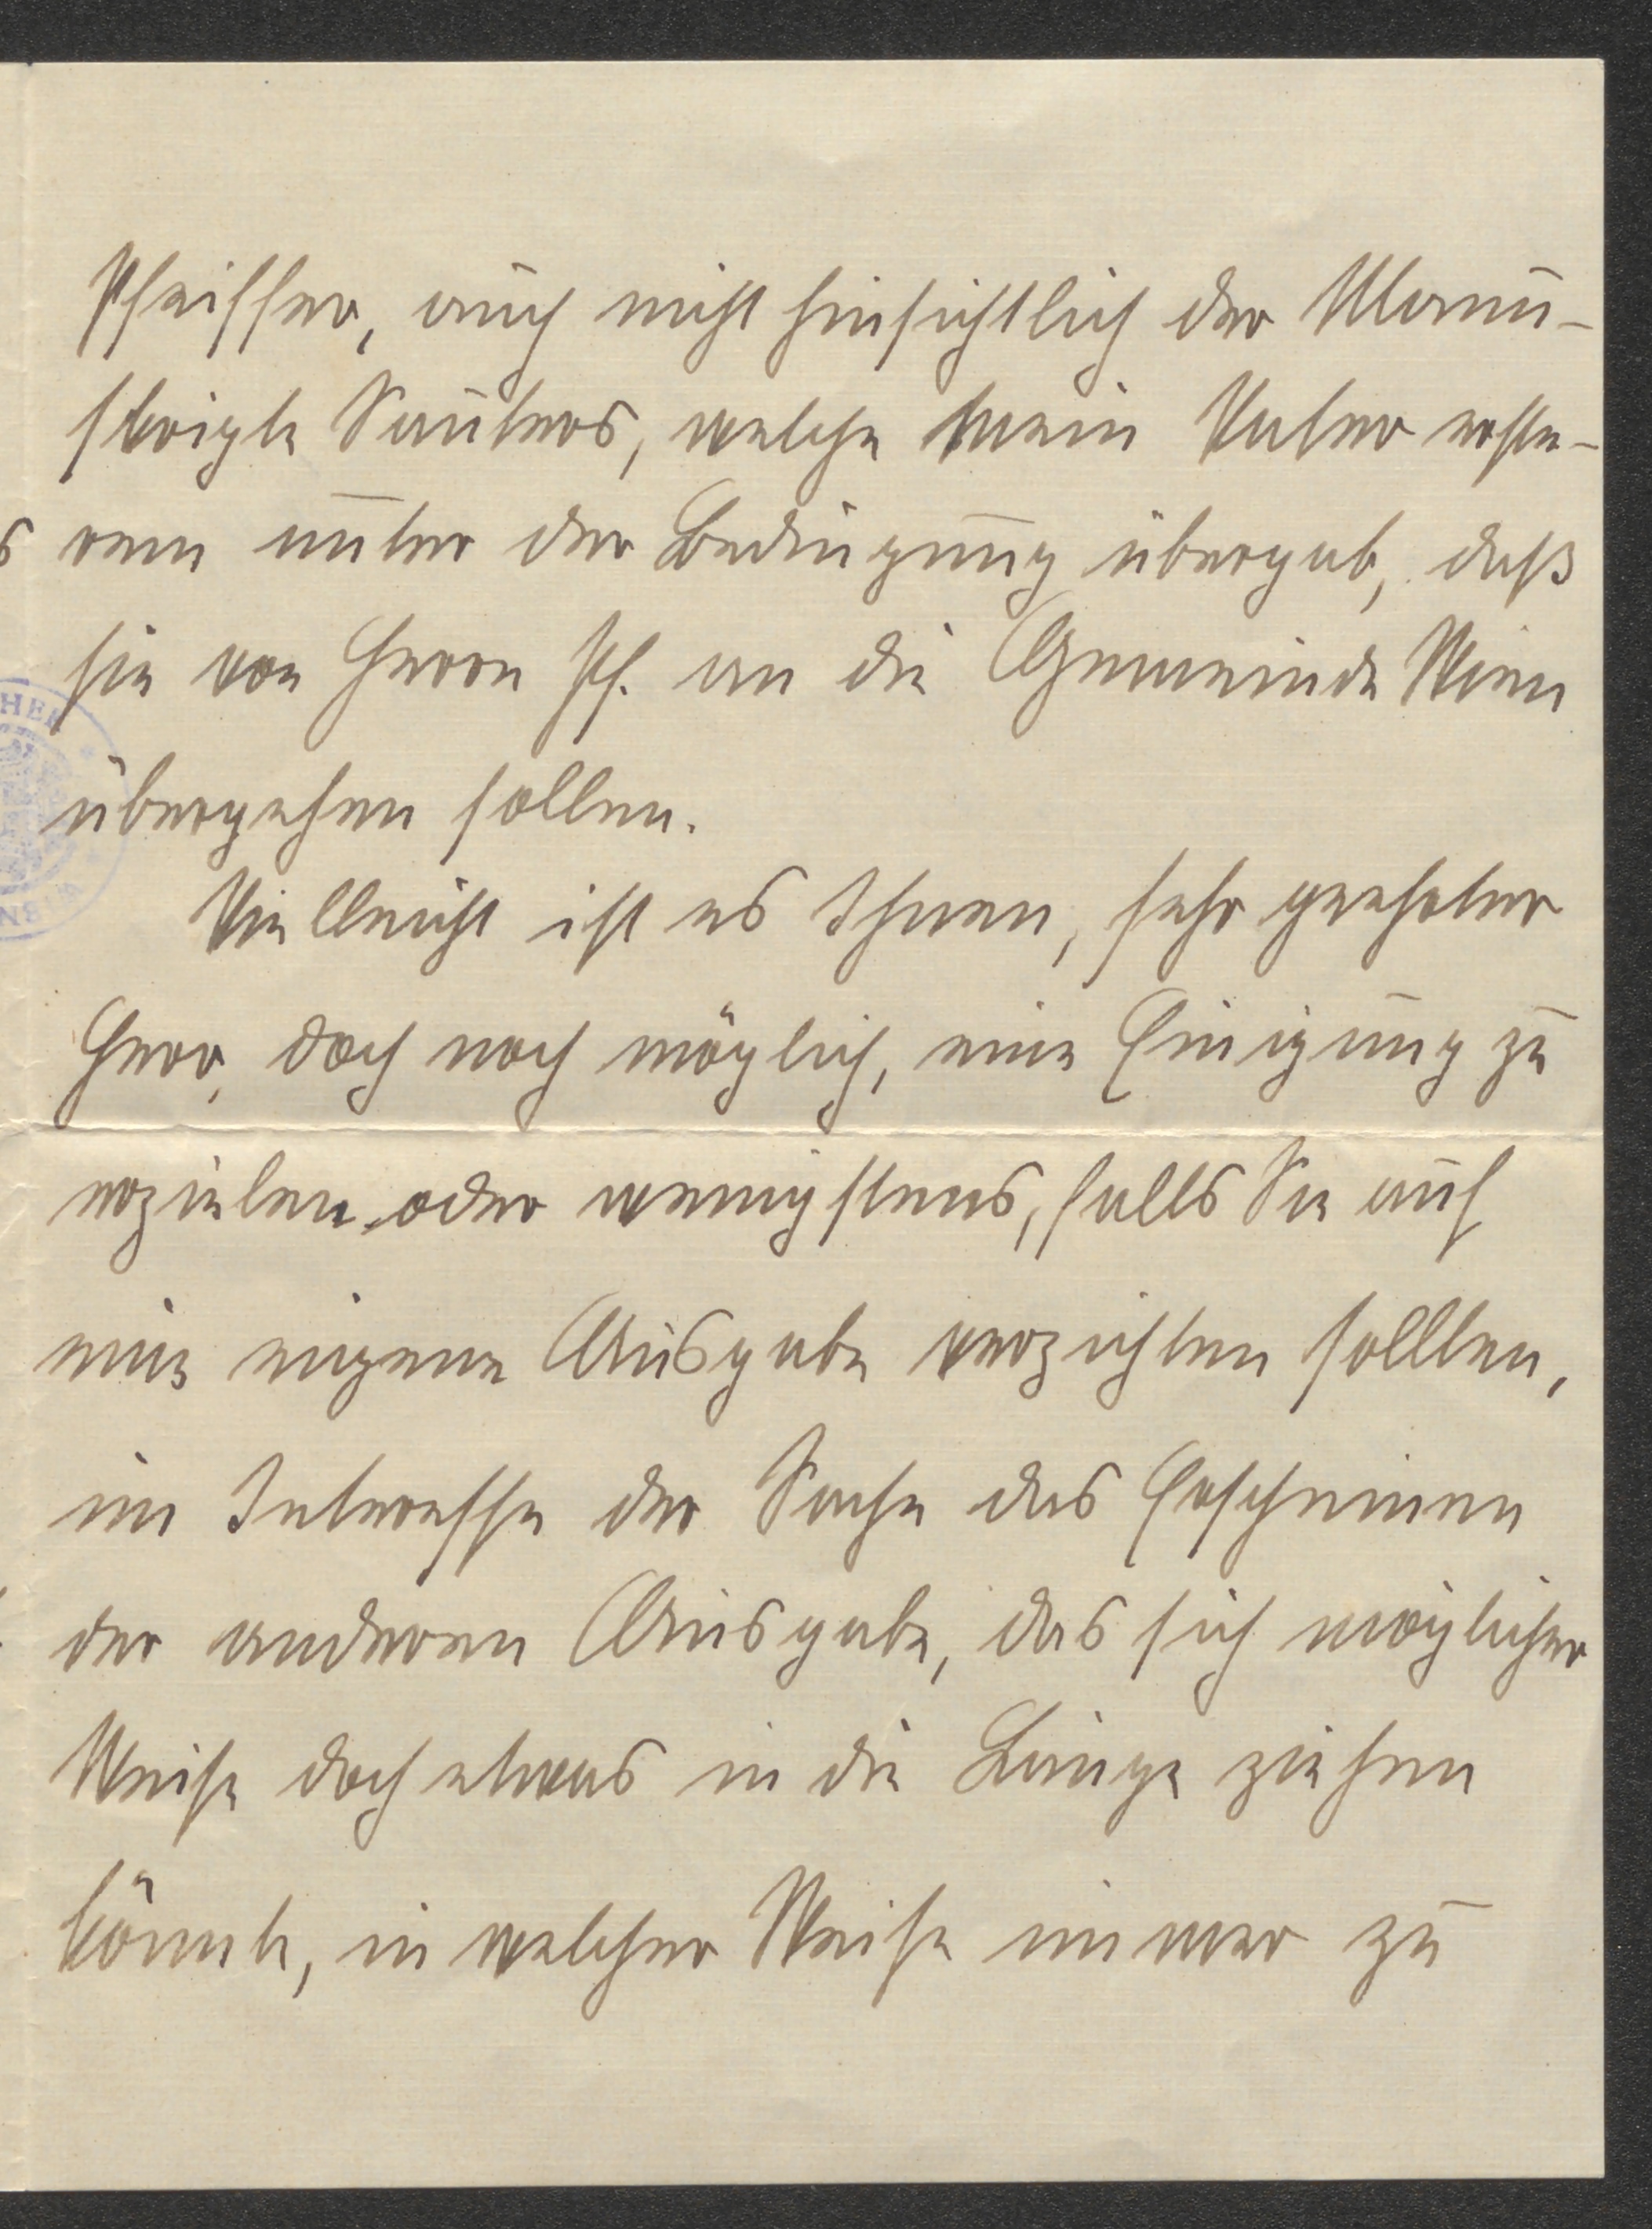 Pfeiffer, auch nicht hinsichtlich der Manu-
skripte Sauters, welche mein Vater erste-
rem unter der Bedingung übergab, daß
sie von Herrn Pf. an die Gemeinde Wien
übergehen sollen.
Vielleicht ist es Ihnen, sehr geehrter
Herr, doch noch möglich, eine Einigung zu
erzielen oder wenigstens, falls Sie auf
eine eigene Ausgabe verzichten sollten,
im Interesse der Sache das Erscheinen
der anderen Ausgabe, das sich möglicher
Weise doch etwas in die Länge ziehen
könnte, in welcher Weise immer zu